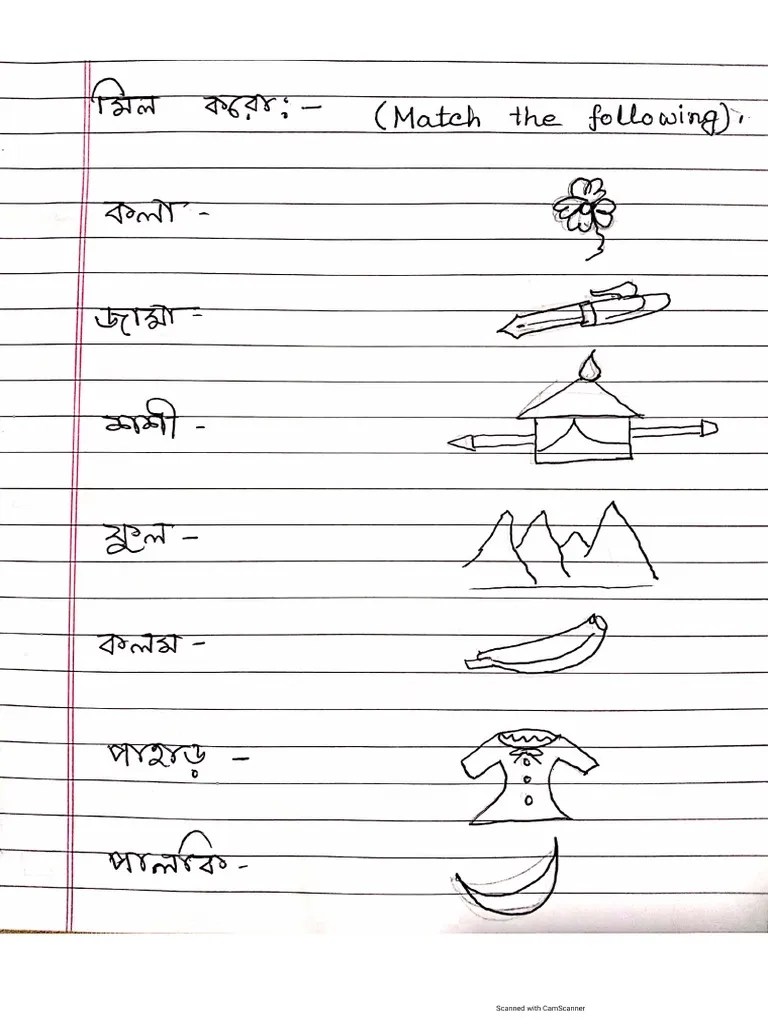 মিল করো:- (Match the following).
কলা -
জামা -
শশী -
ফুল -
কলম -
পাহাড় -
পালকি -
Scanned with CamScanner